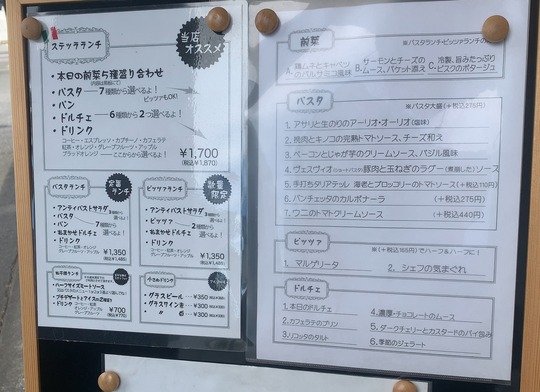 ステッラランチ
当店
オススメ
・本日の前菜5種盛り合わせ
・パスタ → 7種類から選べるよ！
ピッツァもOK!
・パン
・ドルチェ → 6種類から2つ選べるよ！
・ドリンク
コーヒー・エスプレッソ・カプチーノ・カフェラテ
紅茶・オレンジ・グレープフルーツ・アップル
ブラッドオレンジ ここからから選べるよ！
¥1,700
(税込¥1,870)
パスタランチ
定番
ランチ
・アンティパストサラダ
・パスタ
・パン
・おまかせドルチェ
・ドリンク
¥1,350
ピッツァランチ
数量
限定
・アンティパストサラダ
・ピッツァ
・おまかせドルチェ
・ドリンク
¥1,350
・ハーフサイズミートソース
・プチデザートとアイスの2種盛り
・ドリンク
¥700
(税込¥770)
・グラスビール… ¥350
・グラスワイン 赤… ¥300
¥300
前菜
※パスタランチ・ピッツァランチの
鶏ムネとキャベツ
のバルサミコ風味
B. サーモンとチーズの
ムース、バゲット添え
C. 冷製、旨みたっぷり
ビスクのポタージュ
パスタ
※パスタ大盛(+税込275円)
1. アサリと生のりのアーリオ・オーリオ(塩味)
2. 挽肉とキノコの完熟トマトソース、チーズ和え
3. ベーコンとじゃが芋のクリームソース、バジル風味
4. ヴェスヴィオ(ショートパスタ)豚肉と玉ねぎのラグー(煮崩した)ソース
5. 手打ちタリアテレ 海老とブロッコリーのトマトソース(+税込110円)
6. パンチェッタのカルボナーラ (+税込275円)
7. ウニのトマトクリームソース (+税込440円)
ピッツァ
※(+税込165円)でハーフ&ハーフに！
1. マルゲリータ
2. シェフの気まぐれ
ドルチェ
1. 本日のドルチェ
2. カフェラテのプリン
3. リコッタのタルト
4. 濃厚・チョコレートのムース
5. ダークチェリーとカスタードのパイ包み
6. 季節のジェラート